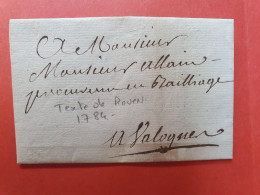 A Monsieur
Monsieur Allain
procureur en Bailliage
Texte de Rouen
1784.
A Valognes